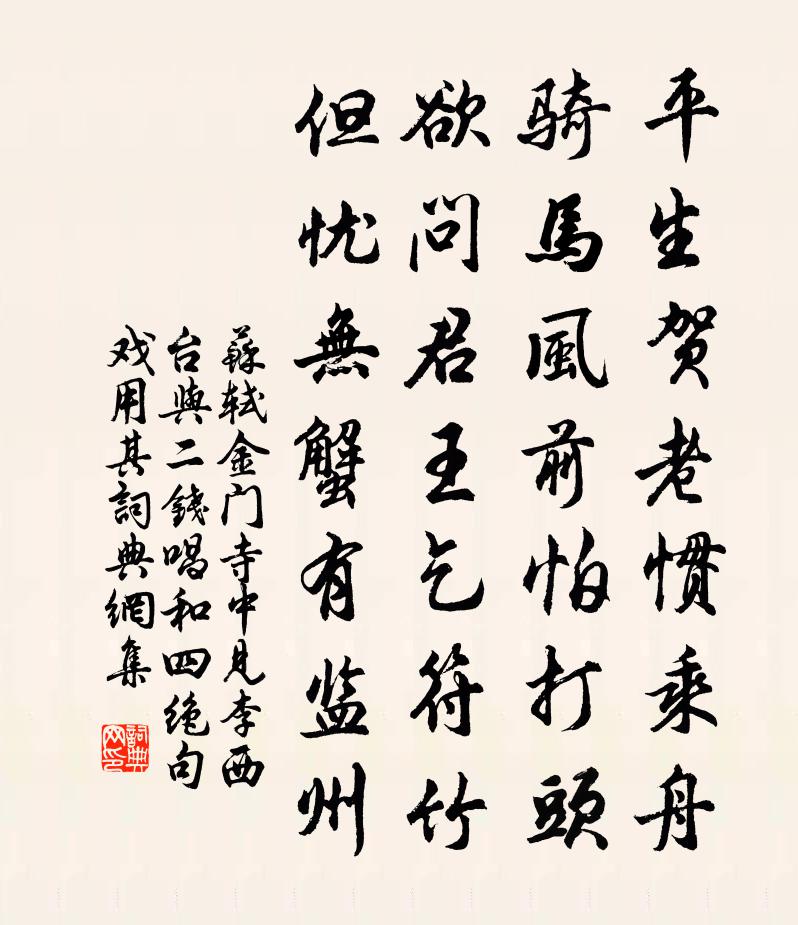 平生贺老惯乘舟
骑馬風前怕打頭
欲问君王乞符竹
但忧無蟹有监州
蘇轼金门寺中见李西
台與二錢唱和四绝句
戏用其詞典網集
詞典网印